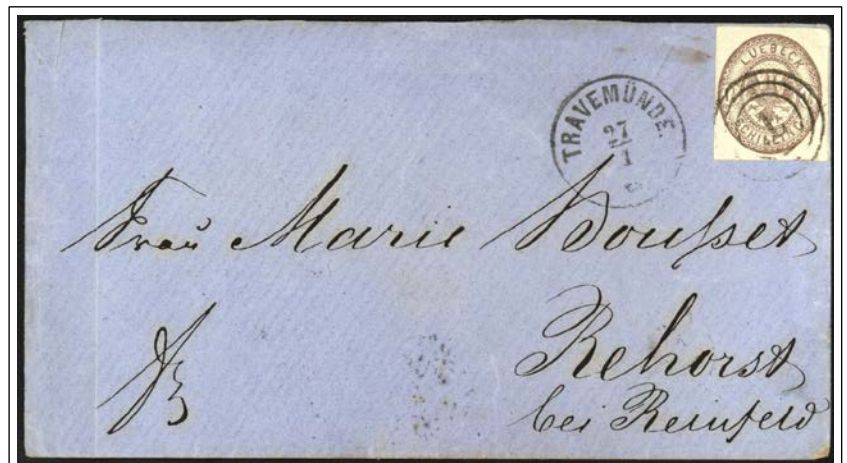 LUEBECK
SCHILLING
TRAVEMÜNDE.
27
1
Frau Marie Bousset
Rehorst
bei Reinfeld